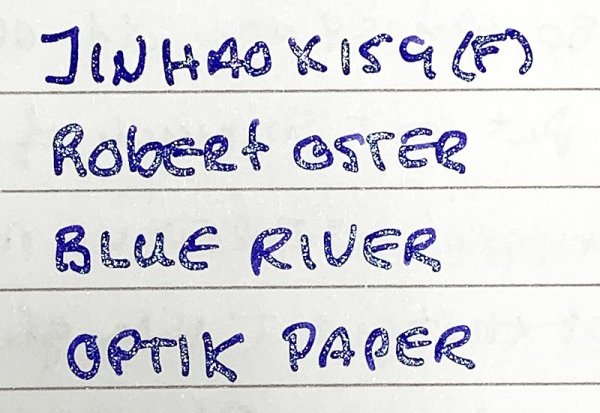 JINHAO X159 (F)
RobERt OSTER
BLUE RIVER
OPTIK PAPER